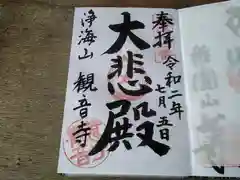 奉拝
令和二年
七月五日
大悲殿
浄海山
観音寺